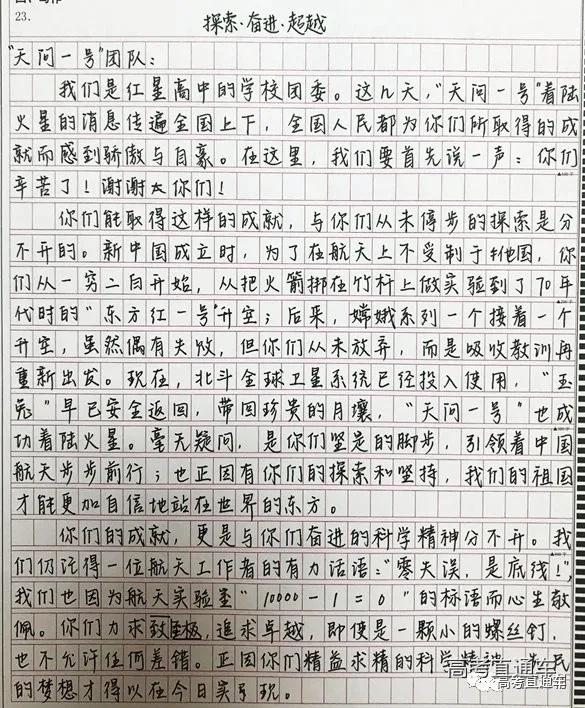 23.
探索·奋进·超越
"天问一号"团队：
我们是红星高中的学校团委。这几天，"天问一号"着陆
火星的消息传遍全国上下，全国人民都为你们所取得的成
就而感到骄傲与自豪。在这里，我们要首先说一声：你们
辛苦了！谢谢你们！
你们能取得这样的成就，与你们从未停步的探索是分
不开的。新中国成立时，为了在航天上不受制于他国，你
们从一穷二白开始，从把火箭绑在竹杆上做实验到了70年
代时的"东方红一号"升空；后来，嫦娥系列一个接着一个
升空，虽然偶有失败，但你们从未放弃，而是吸收教训再
重新出发。现在，北斗全球卫星系统已经投入使用，"玉
兔"早已安全返回，带回珍贵的月壤，"天问一号"也成
功着陆火星。毫无疑问，是你们坚定的脚步，引领着中国
航天步步前行；也正因有你们的探索和坚持，我们的祖国
才能更加自信地站在世界的东方。
你们的成就，更是与你们奋进的科学精神分不开。我
们仍记得一位航天工作者的有力话语："零失误，是底线！"，
我们也因为航天实验室"10000-1=0"的标语而心生敬
佩。你们力求致臻，追求卓越，即使是一颗小的螺丝钉，
也不允许任何差错。正因你们精益求精的科学精神，民
的梦想才得以在今日实现。
高考直通车
高考直通车